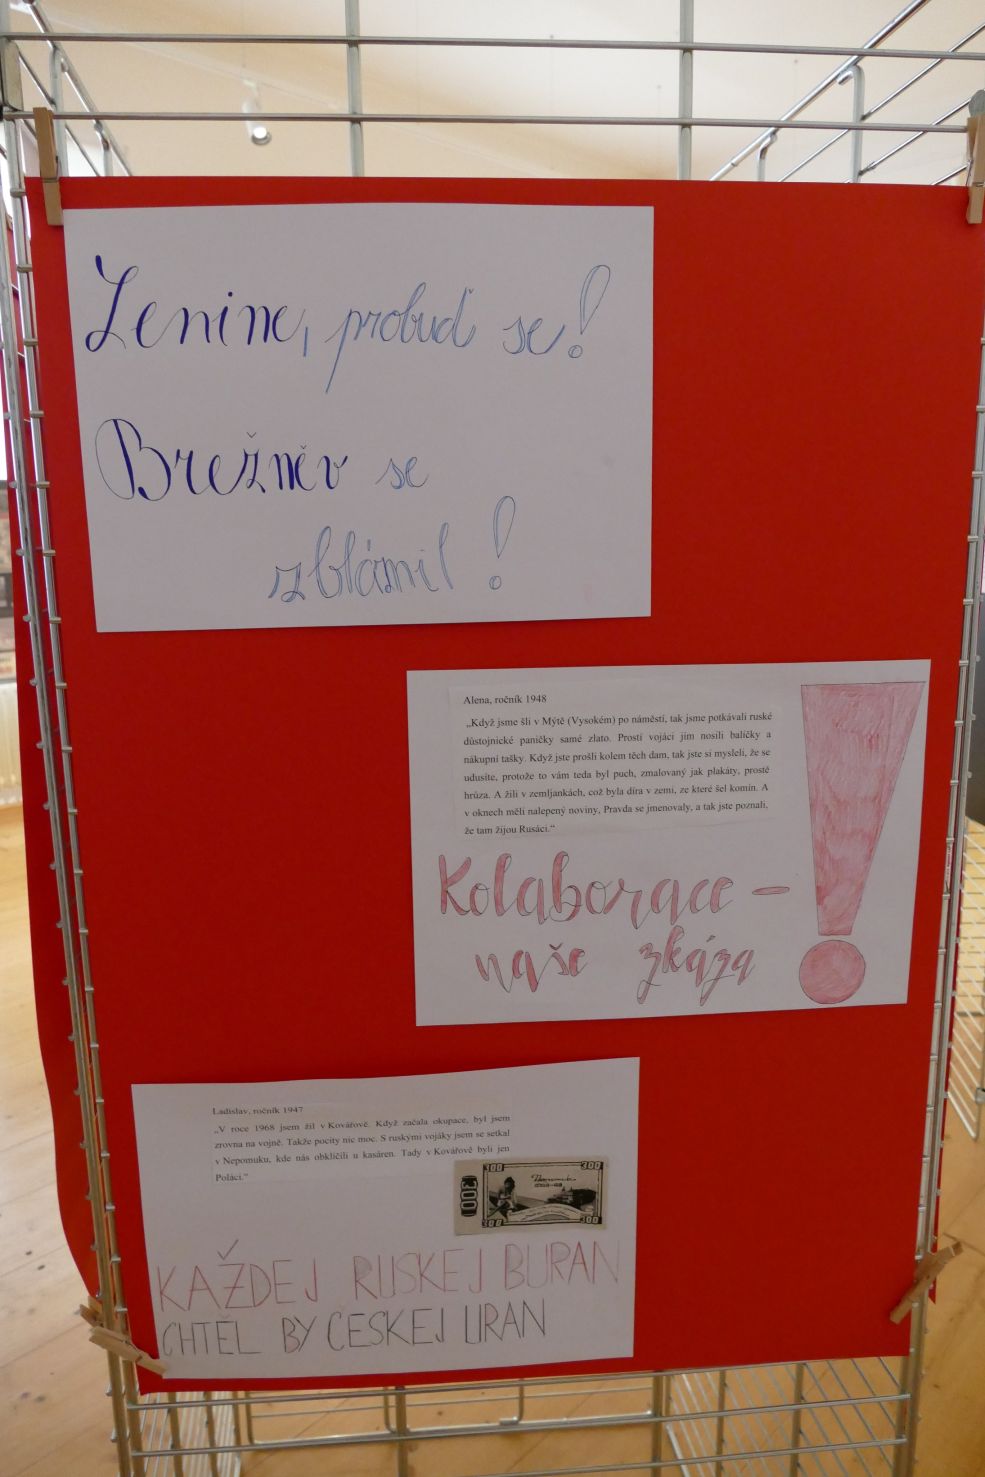 Lenine, probuď se!
Brežněv se
zbláznil!
Alena, ročník 1948
„Když jsme šli v Mýtě (Vysokém) po náměstí, tak jsme potkávali ruské
důstojnické paničky samé zlato. Prostí vojáci jim nosili balíčky a
nákupní tašky. Když jste prošli kolem těch dam, tak jste si mysleli, že se
udusíte, protože to vám teda byl puch, zmalovaný jak plakáty, prostě
hrůza. A žili v zemljankách, což byla díra v zemi, ze které šel komín. A
v oknech měli nalepený noviny, Pravda se jmenovaly, a tak jste poznali,
že tam žijou Rusáci.“
Kolaborace –
naše zkáza
!
Ladislav, ročník 1947
„V roce 1968 jsem žil v Kovářově. Když začala okupace, byl jsem
zrovna na vojně. Takže pocity nic moc. S ruskými vojáky jsem se setkal
v Nepomuku, kde nás obklíčili u kasáren. Tady v Kovářově byli jen
Poláci.“
300 300
300
300 300
KAŽDEJ RUSKEJ BURAN
CHTĚL BY ČESKEJ URAN